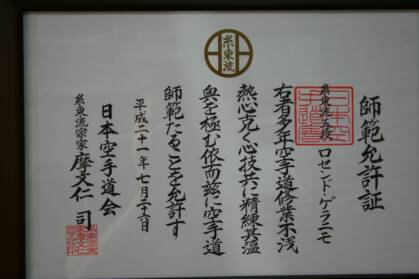 糸東流
師範允許証
糸東流五段 ロセンド・グラニモ
右者多年空手道修業不浅
熱心克く心技共に精練其薀
奥を極む依而茲に空手道
師範たることを允許す
平成二十一年七月二十六日
日本空手道会
糸東流宗家 摩文仁 司